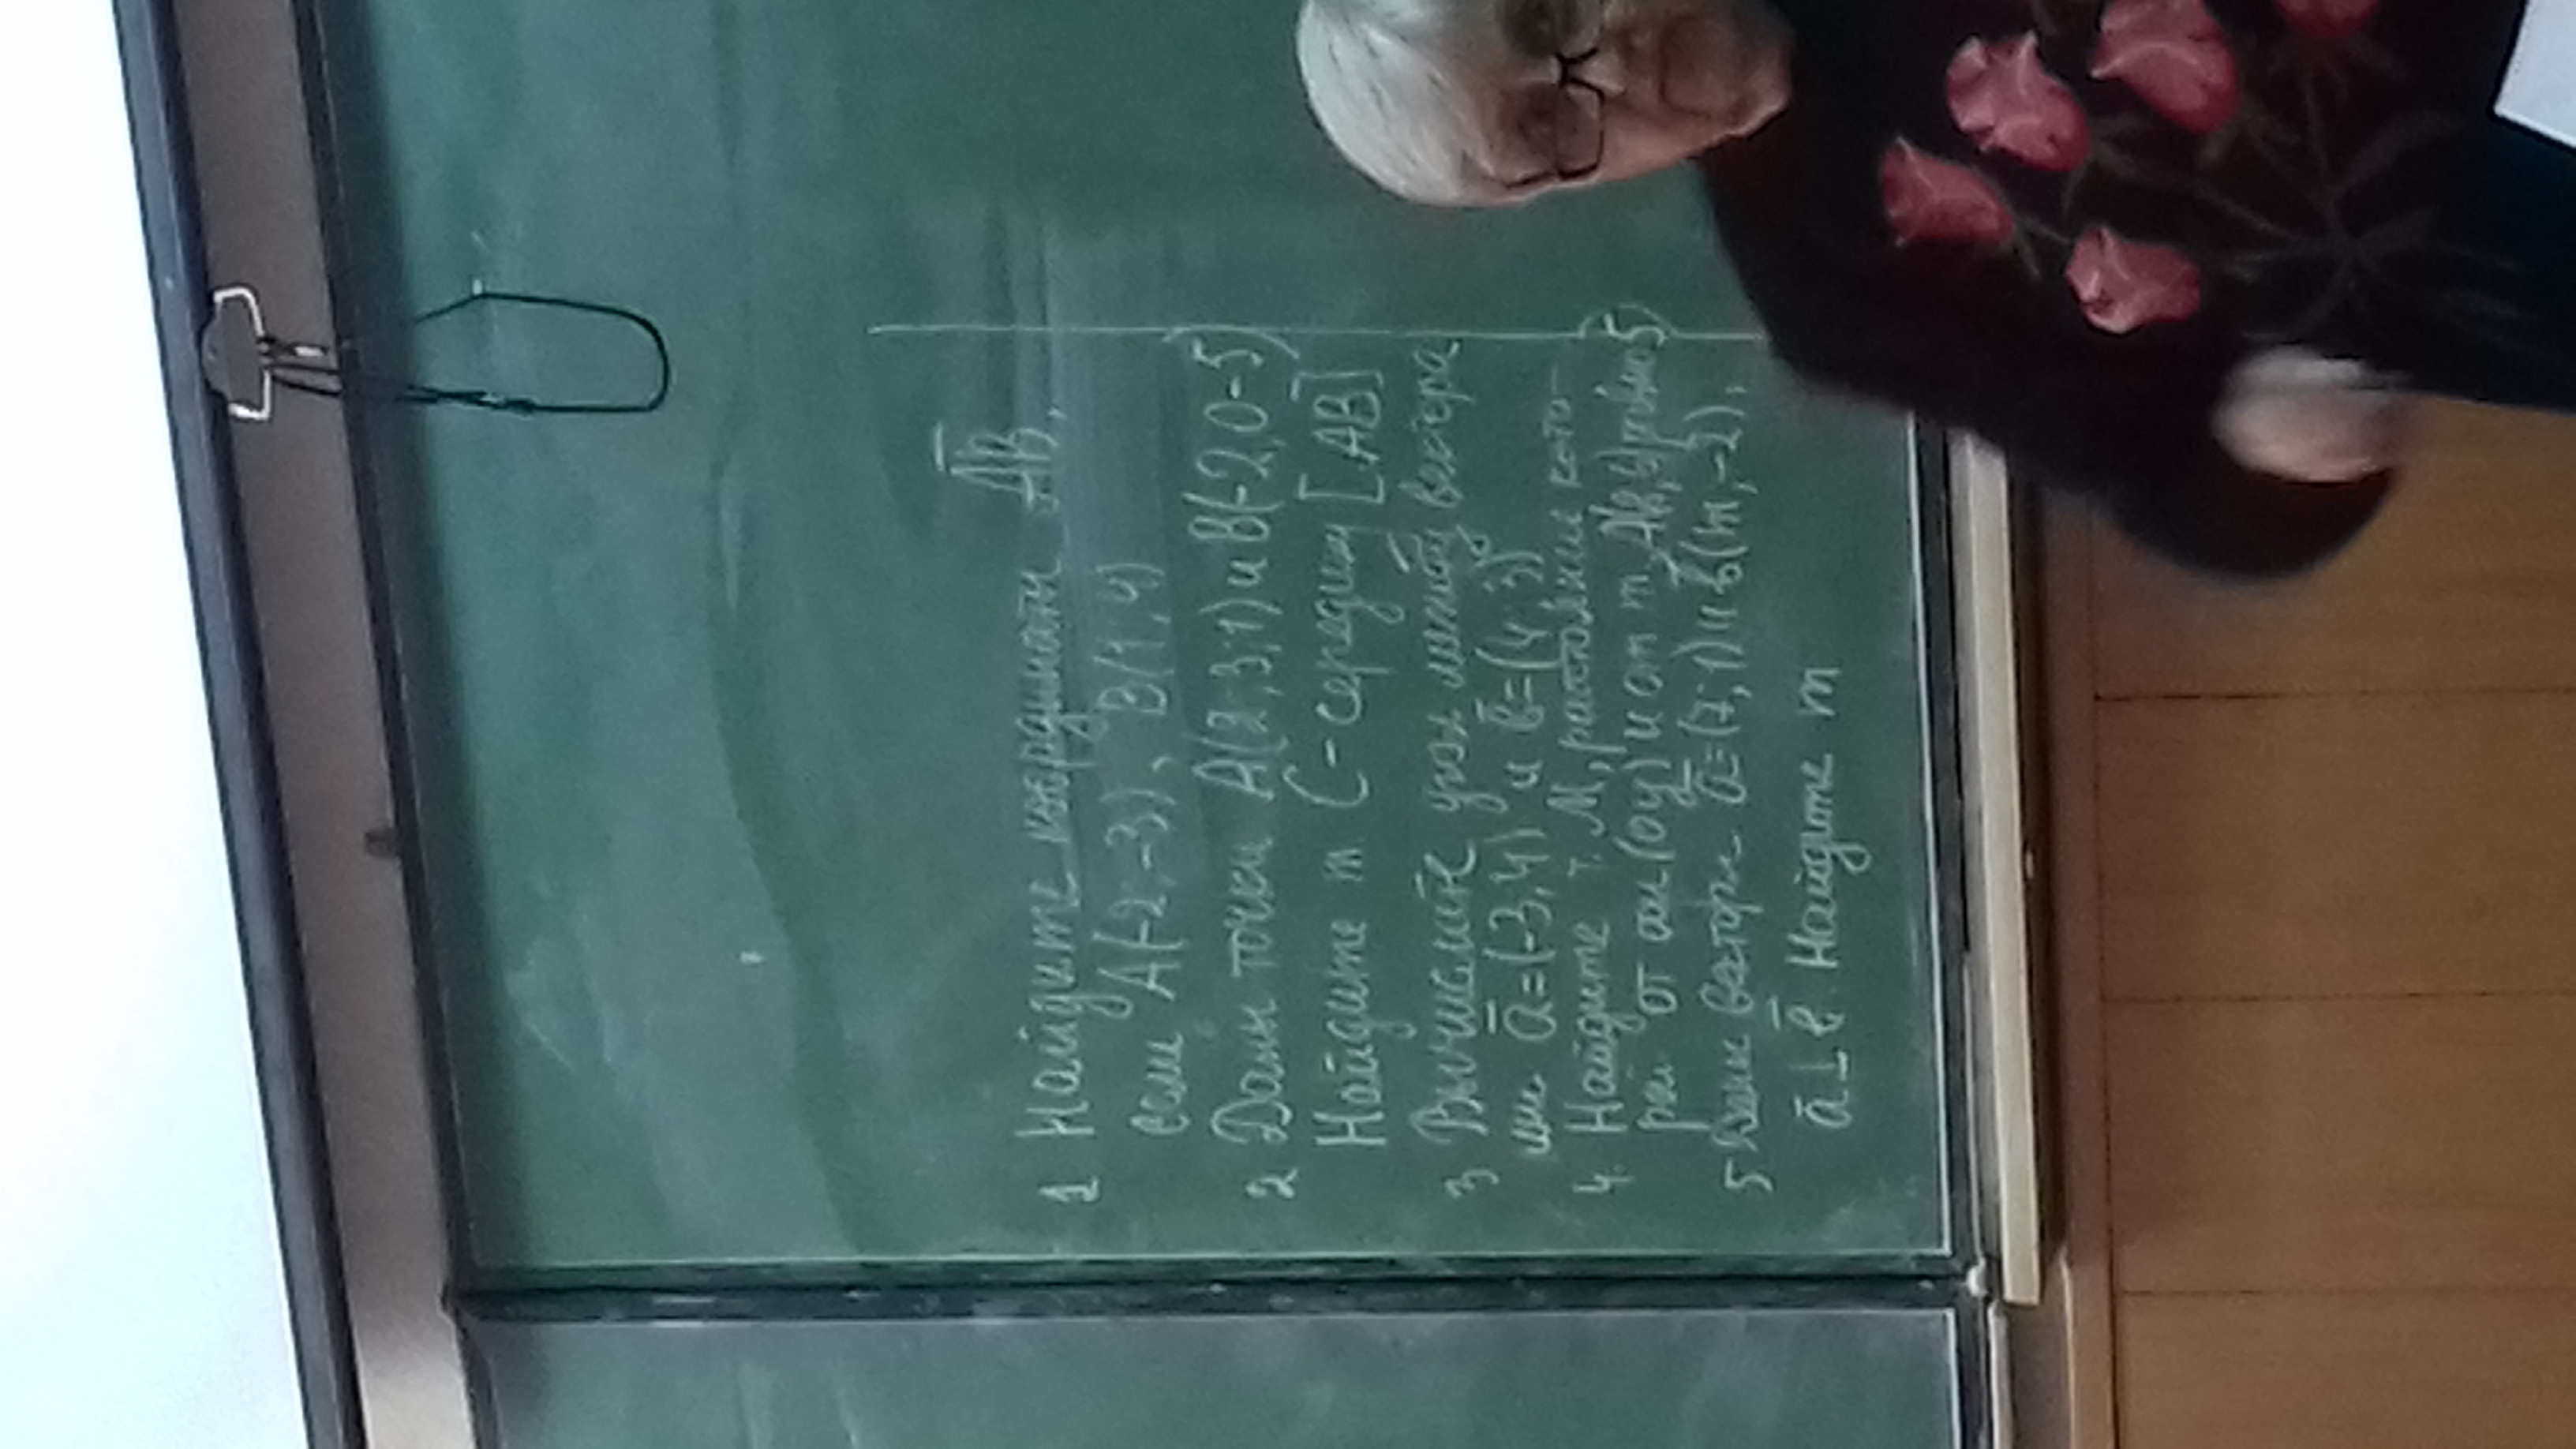 1 Найдите координаты A̅B̅,
если A(-2,-3), B(1,4)
2 Даны точки A(2,3,1) и B(-2,0-5)
Найдите т C-середину [AB]
3 Вычислите угол между вектора
ми a̅=(-3,4) и b̅=(4,3)
4. Найдите т. M, расстояние кото-
рой от оси (oy) и от т равно 5
5 Даны векторы a̅=(7,1) и b̅(m,-2),
a̅⊥b̅. Найдите m